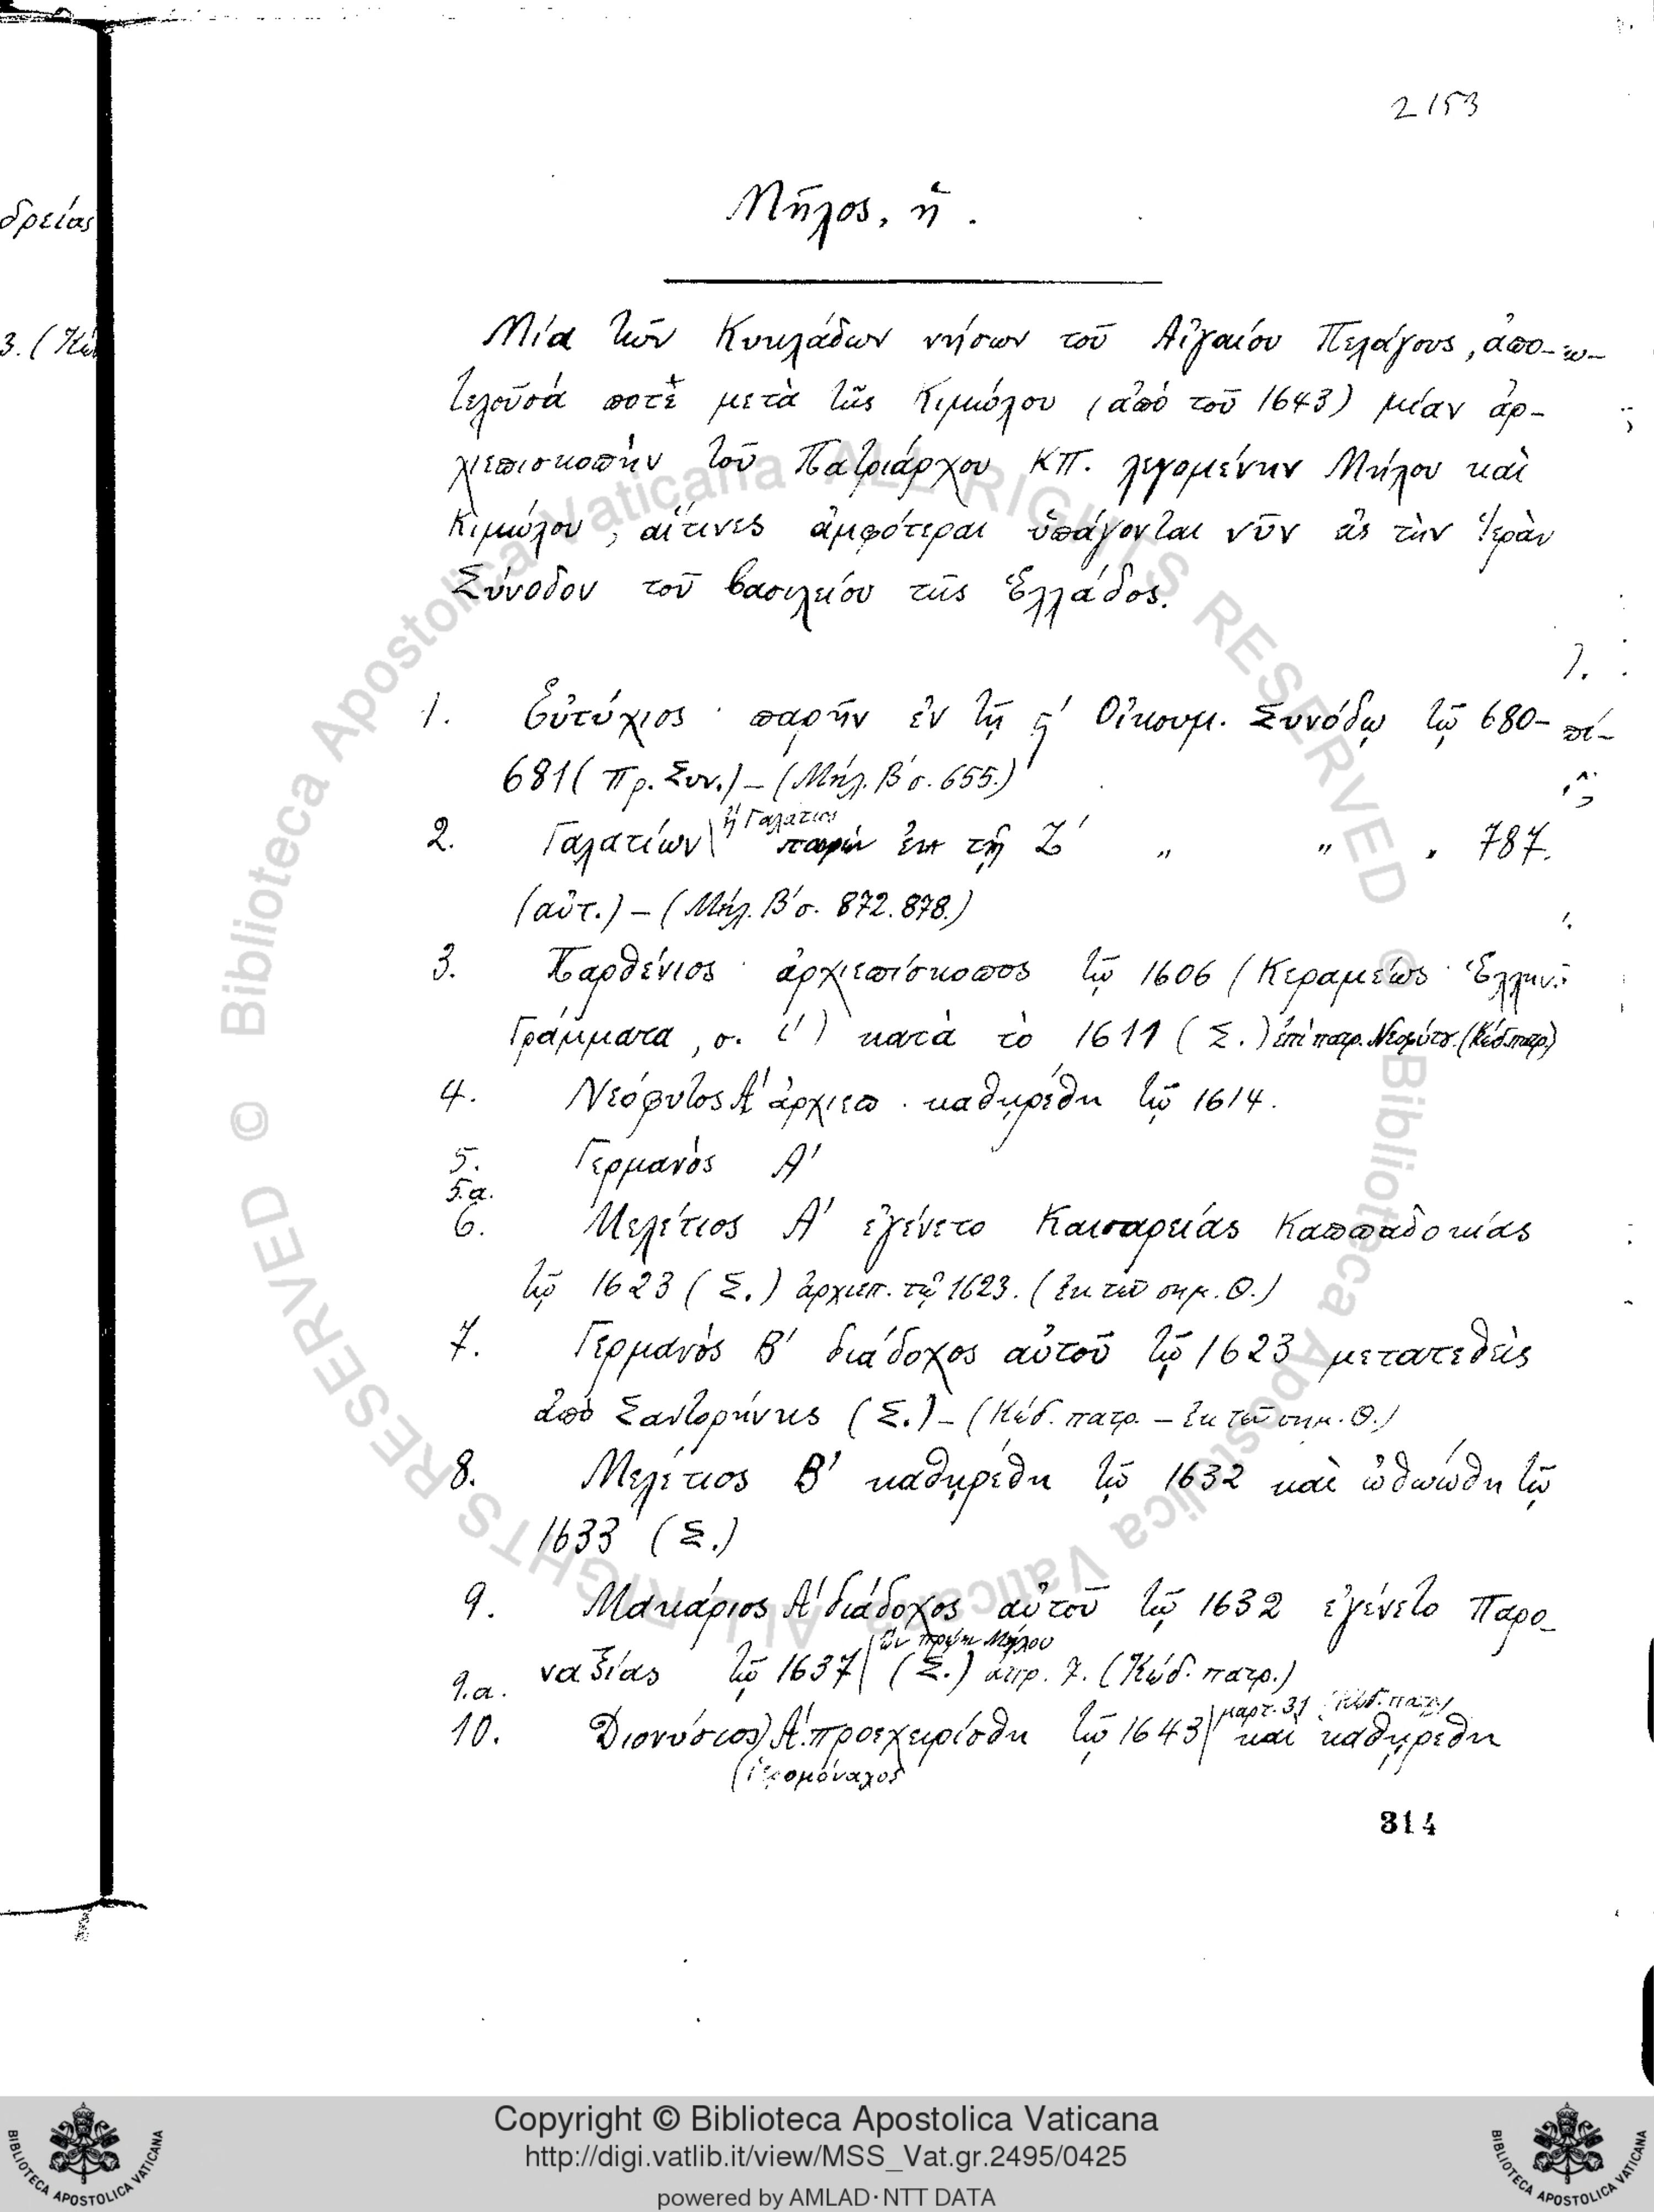 2153
Μῆλος, ἡ.
Μία τῶν Κυκλάδων νήσων τοῦ Αἰγαίου Πελάγους, ἀπο-
τελοῦσά ποτὲ μετὰ τῆς Κιμώλου (ἀπὸ τοῦ 1643) μίαν ἀρ-
χιεπισκοπὴν τοῦ Πατριάρχου ΚΠ. λεγομένην Μήλου καὶ
Κιμώλου, αἵτινες ἀμφότεραι ὑπάγονται νῦν εἰς τὴν Ἱερὰν
Σύνοδον τοῦ βασιλείου τῆς Ἑλλάδος.
1. Εὐτύχιος · παρῆν ἐν τῇ ϛ' Οἰκουμ. Συνόδῳ τῷ 680-
681 (Πρ. Συν.) – (Μήλ. Β' σ. 655.)
ἢ Γαλάτιος
2. Γαλατίων παρὼν ἐν τῇ Ζ' „ „ „ 787.
(αὐτ.) – (Μήλ. Β' σ. 872. 878.)
3. Παρθένιος · ἀρχιεπίσκοπος τῷ 1606 (Κεραμέως · Ἑλλην.
Γράμματα, σ. ) κατὰ τὸ 1611 (Σ.) ἐπὶ πατρ. Νεοφύτου. (Κώδ. πατρ.)
4. Νεόφυτος Α' ἀρχιεπ. καθῃρέθη τῷ 1614.
5. Γερμανὸς Α'
5.α.
6. Μελέτιος Α' ἐγένετο Καισαρείας Καππαδοκίας
τῷ 1623 (Σ.) ἀρχιεπ. τῷ 1623. (Ἐκ τῶν σημ. Θ.)
7. Γερμανὸς Β' διάδοχος αὐτοῦ τῷ 1623 μετατεθεὶς
ἀπὸ Σαντορήνης (Σ.) – (Κώδ. πατρ. – Ἐκ τῶν σημ. Θ.)
8. Μελέτιος Β' καθῃρέθη τῷ 1632 καὶ ἠθῳώθη τῷ
1633 (Σ.)
9. Μακάριος Α' διάδοχος αὐτοῦ τῷ 1632 ἐγένετο Παρο-
ὢν πρῴην Μήλου
ναξίας τῷ 1637 (Σ.) ἀπρ. 7. (Κώδ. πατρ.)
9.α.
μαρτ. 31 (Κώδ. πατρ.)
10. Διονύσιος Α'. προεχειρίσθη τῷ 1643 καὶ καθῃρέθη
(ἱερομόναχος
314
δρείας
3. (Κώ
© Biblioteca Apostolica Vaticana ALL RIGHTS RESERVED © Biblioteca Apostolica Vaticana ALL RIGHTS RESERVED
Copyright © Biblioteca Apostolica Vaticana
http://digi.vatlib.it/view/MSS_Vat.gr.2495/0425
powered by AMLAD·NTT DATA
BIBLIOTECA APOSTOLICA VATICANA
BIBLIOTECA APOSTOLICA VATICANA